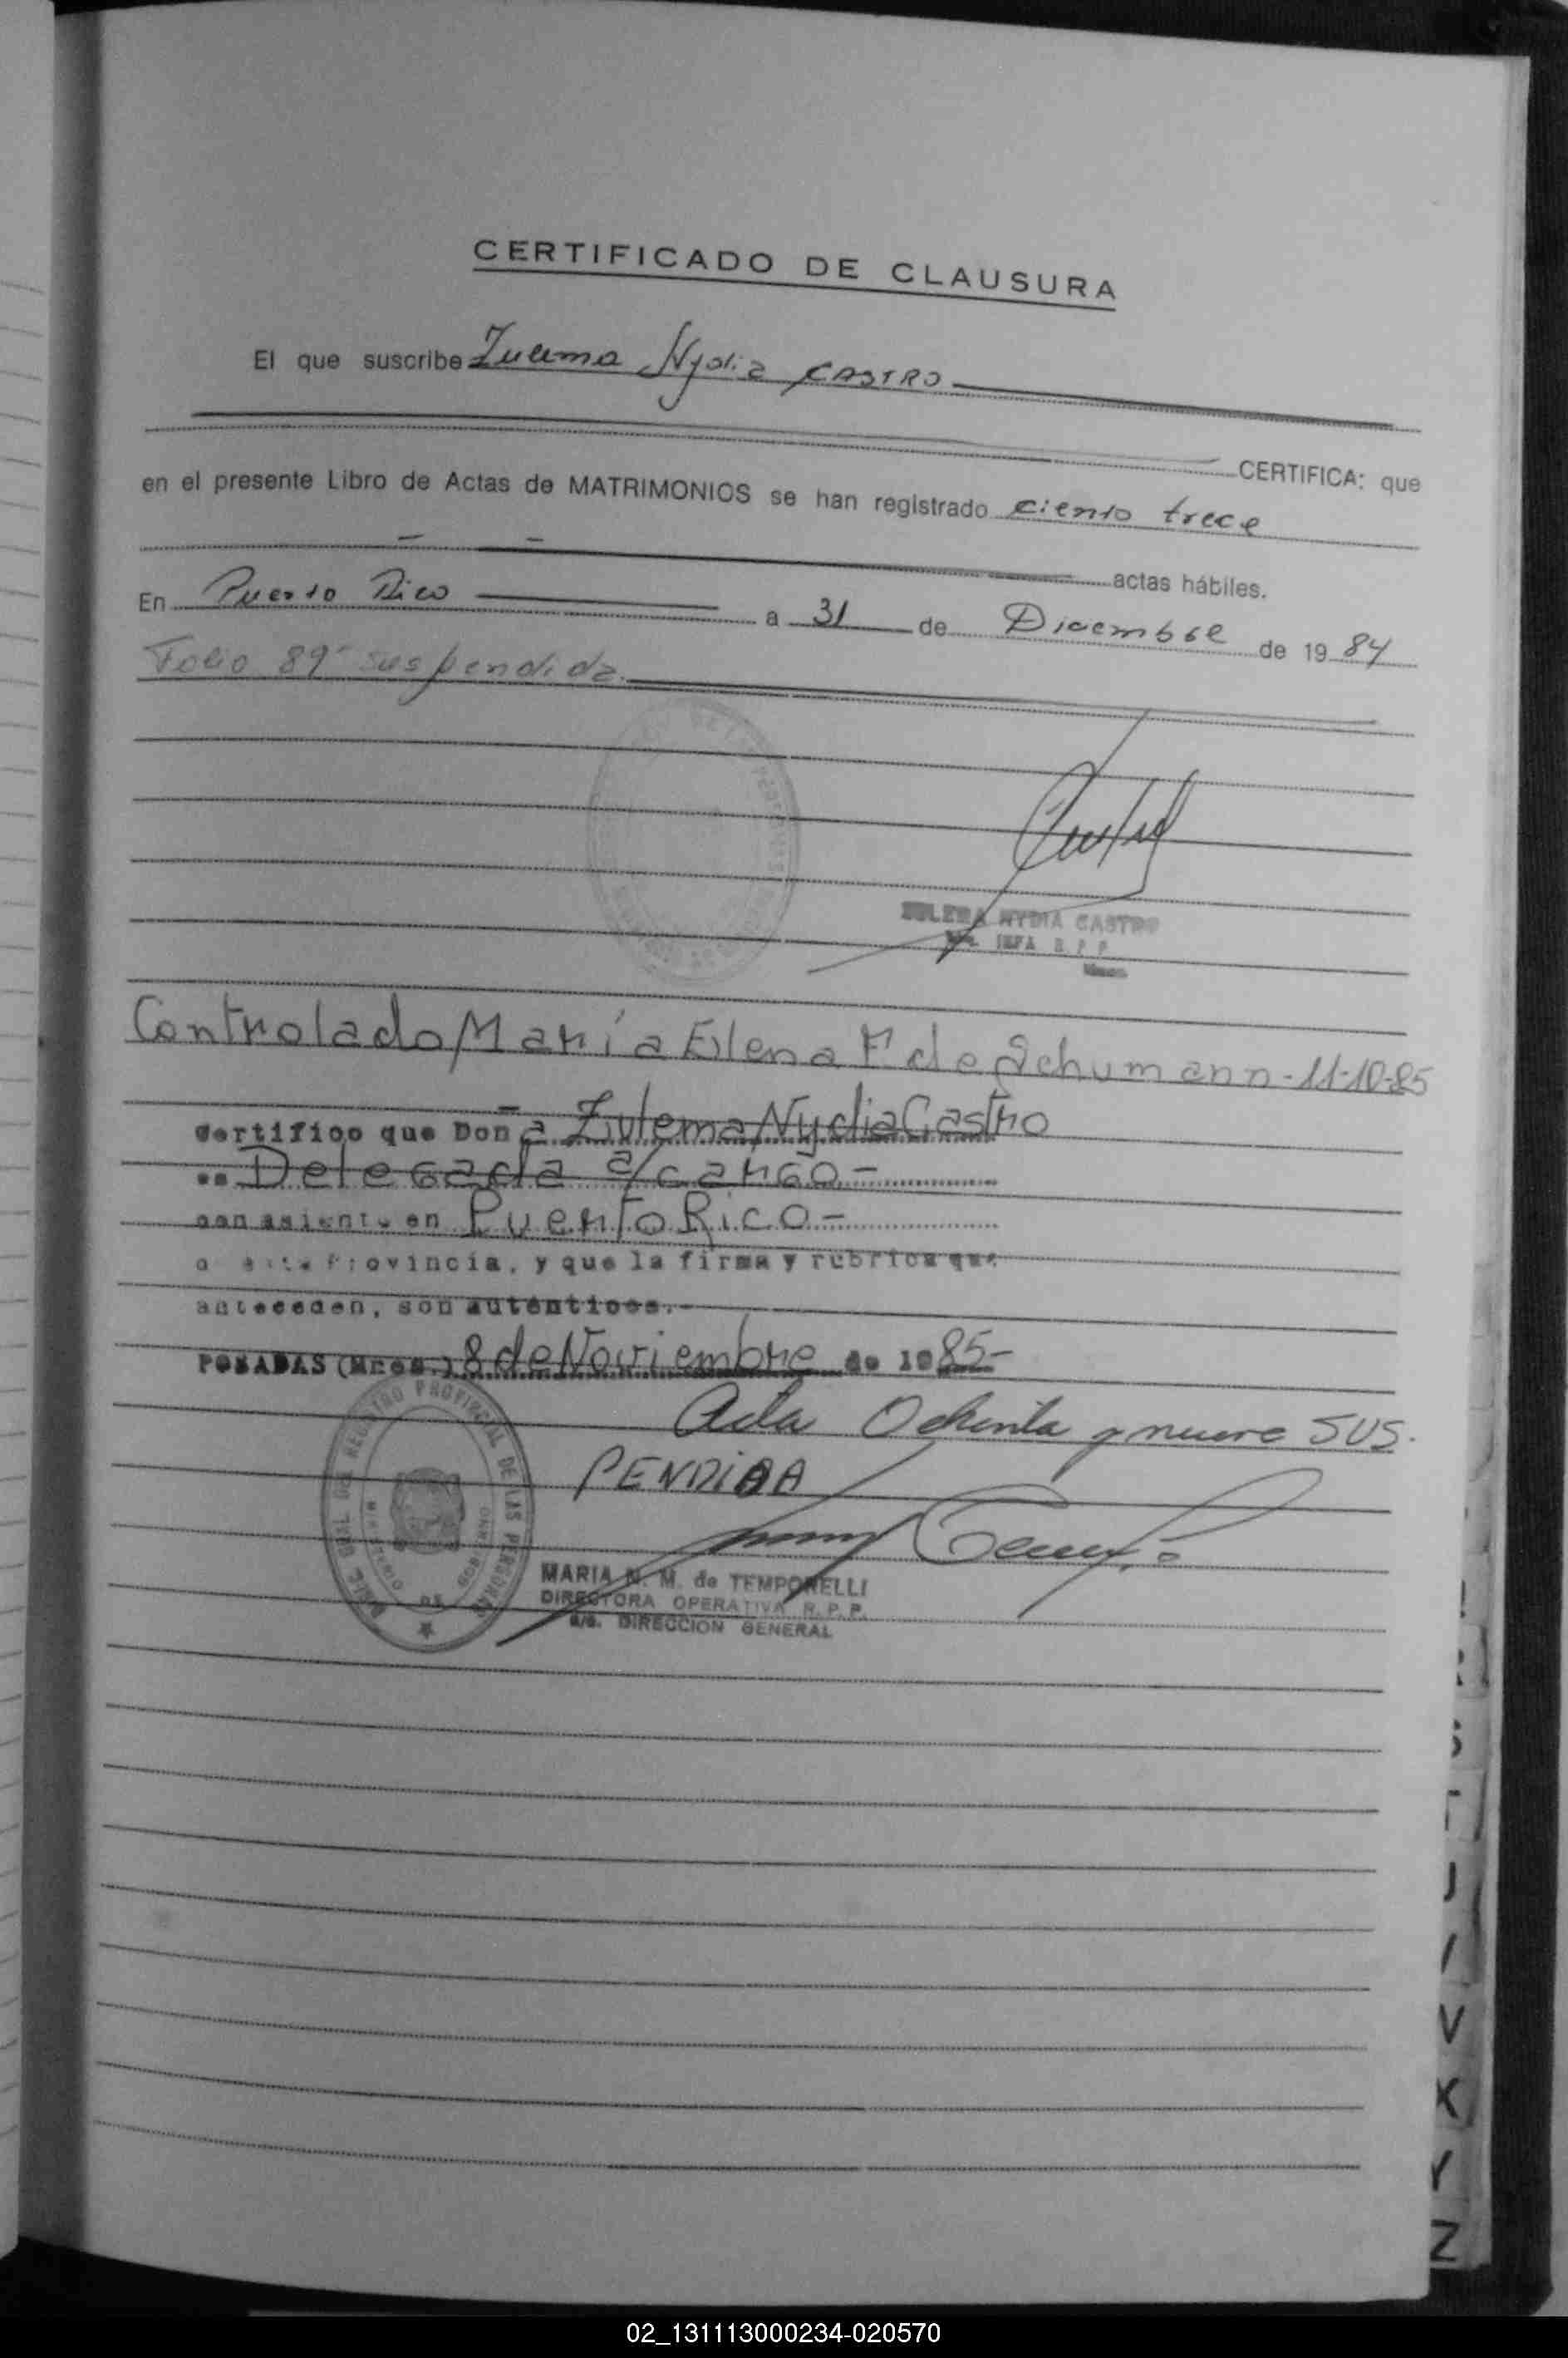 CERTIFICADO DE CLAUSURA
El que suscribe Zulema Nydia CASTRO
CERTIFICA: que
en el presente Libro de Actas de MATRIMONIOS se han registrado ciento trece
actas hábiles.
En Puerto Rico a 31 de Diciembre de 1984
Folio 89 suspendida.
ZULEMA NYDIA CASTRO
JEFA R. P. P.
Controlado María Elena F. de Schumann - 11-10-85
Certifico que Doña Zulema Nydia Castro
es Delegada a/cargo -
con asiento en Puerto Rico -
a esta Provincia, y que la firma y rubrica que
anteceden, son auténticos.-
POSADAS (Mnes.) 8 de Noviembre de 1985-
Acta Ochenta y nueve SUS-
PENDIDA
GRAL. DEL REGISTRO PROVINCIAL DE LAS PERSONAS
MINISTERIO DE GOBIERNO
MARIA N. M. de TEMPORELLI
DIRECTORA OPERATIVA R. P. P.
a/c. DIRECCION GENERAL
J
I
V
K
Y
Z
02_131113000234-020570